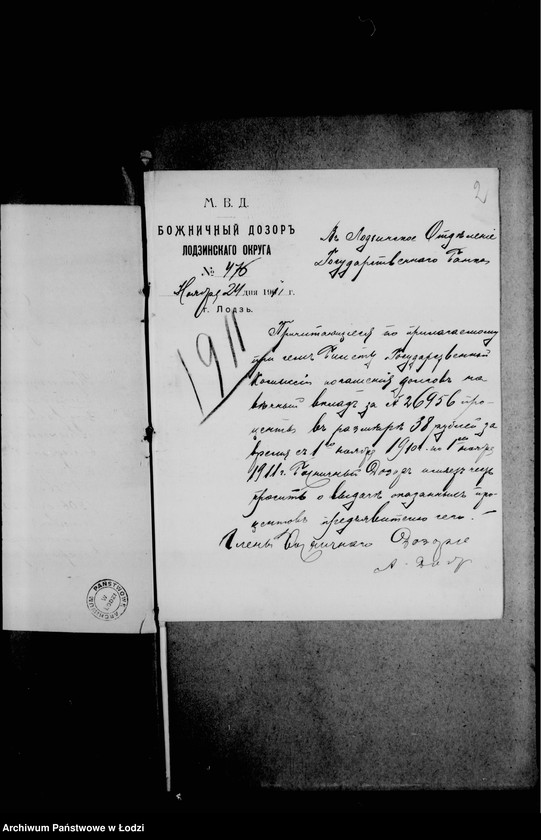 2
М. В. Д.
БОЖНИЧНЫЙ ДОЗОРЪ
ЛОДЗИНСКАГО ОКРУГА
№ 476
Ноября 24 дня 1911 г.
г. Лодзь.
Въ Лодзинское Отдѣленіе
Государственнаго Банка
1911
Причитающіеся по прилагаемому
при семъ Государственной
Коммиссіи погашенія долговъ на
вѣчный вкладъ за № 26956 про-
центы въ размѣрѣ 38 рублей за
время съ 1го ноября 1910 по 1ое ноября
1911 г. Божничный Дозоръ имѣетъ честь
просить о выдачѣ означенныхъ про-
центовъ предъявителю сего.
Члены Божничнаго Дозора
ARCHIWUM PAŃSTWOWE
W ŁODZI
Archiwum Państwowe w Łodzi